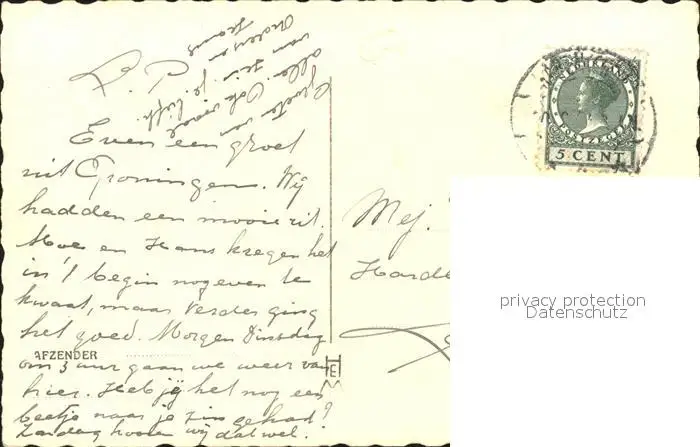 L. P.
Even een groet
uit Groningen. Wij
hadden een mooie rit.
Moe en Hans kregen het
in 't begin nog even te
kwaat, maar verder ging
het goed. Morgen Dinsdag
AFZENDER
om 3 uur gaan we weer van
hier. Heb jij het nog een
beetje naar je zin gehad?
Zondag hooren wij dat wel.
Groeten van
allen
van
NEDERLAND
5 CENT
Mej.
privacy protection
Datenschutz